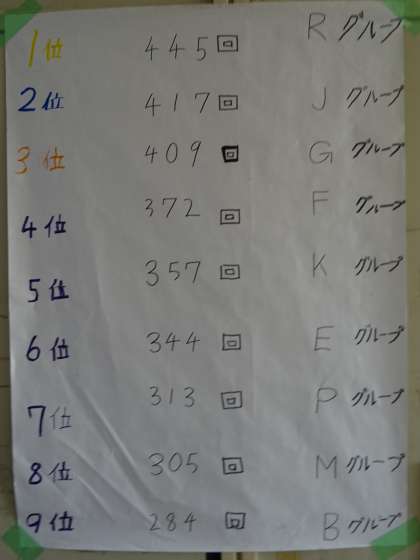 1位 445回 Rグループ
2位 417回 Jグループ
3位 409回 Gグループ
4位 372回 Fグループ
5位 357回 Kグループ
6位 344回 Eグループ
7位 313回 Pグループ
8位 305回 Mグループ
9位 284回 Bグループ